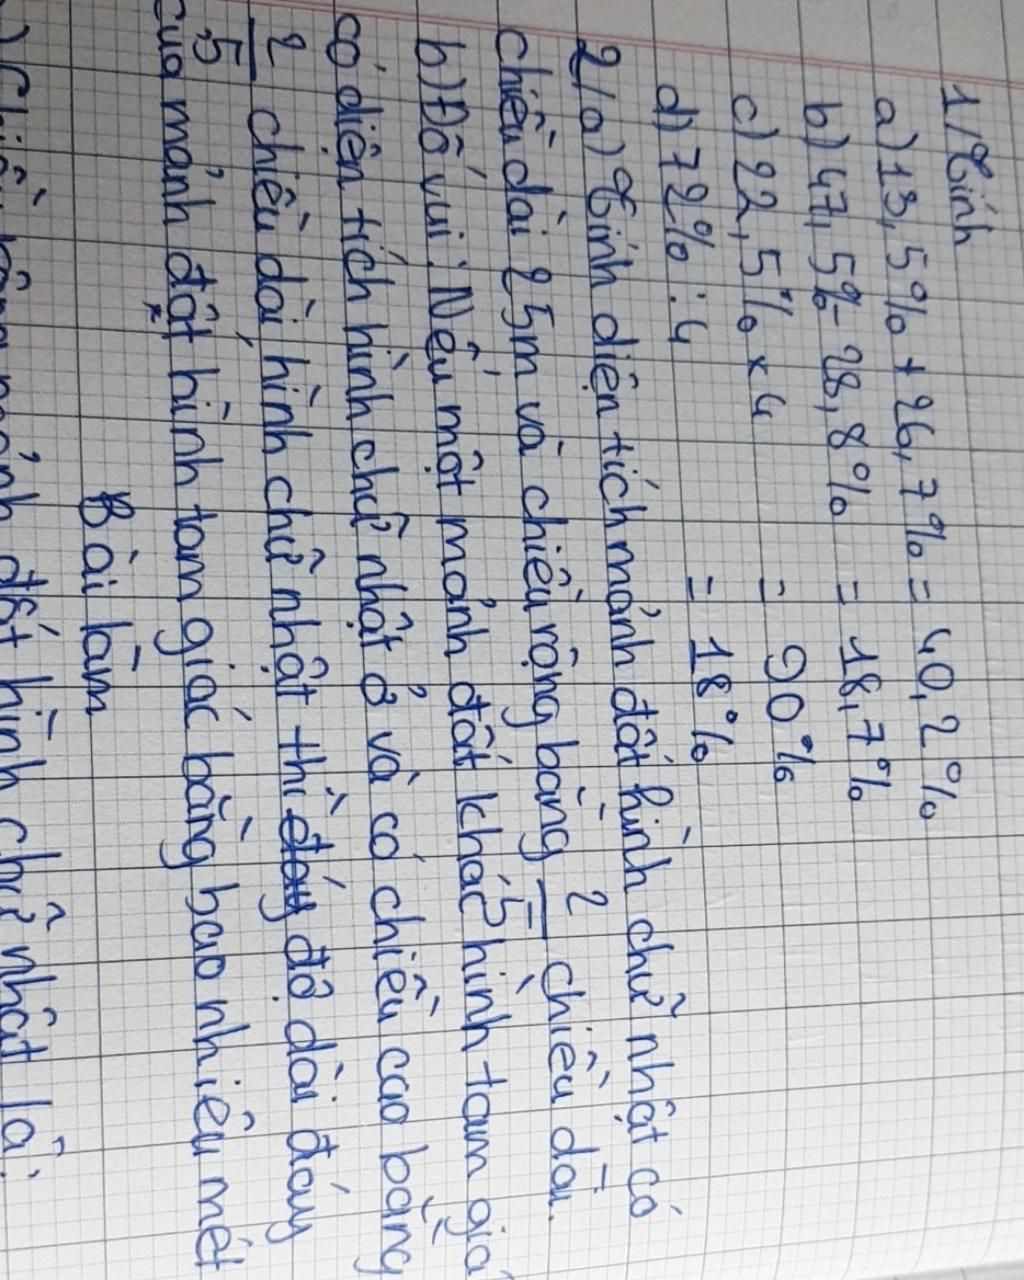 1/Tính
a) 13,5% + 26,7% = 40,2%
b) 47,5% - 28,8% = 18,7%
c) 22,5% x 4 = 90%
d) 72% : 4 = 18%
2/a) Tính diện tích mảnh đất hình chữ nhật có
chiều dài 25m và chiều rộng bằng 2/5 chiều dài.
b) Đố vui: Nếu một mảnh đất khác hình tam giá
có diện tích hình chữ nhật ở và có chiều cao bằng
2/5 chiều dài hình chữ nhật thì độ dài đáy
của mảnh đất hình tam giác bằng bao nhiêu mét
Bài làm
mảnh đất hình chữ nhật là: